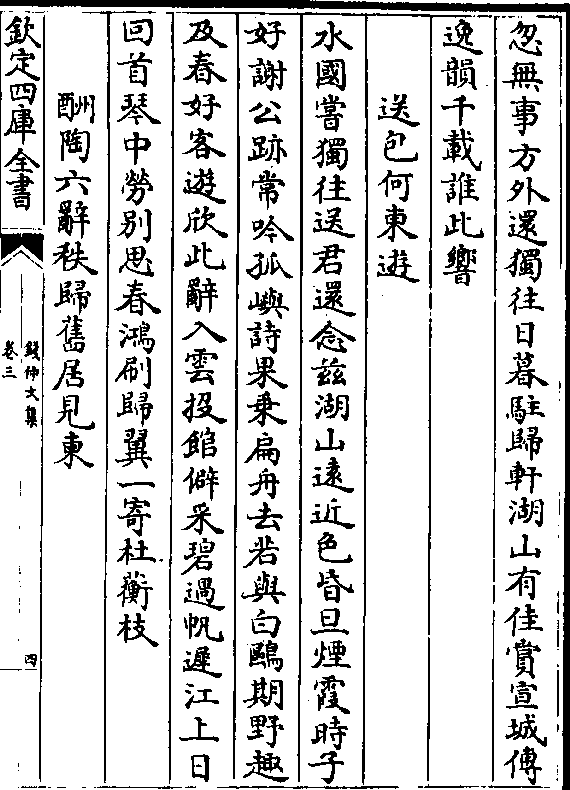 忽無事方外還獨往日暮駐歸軒湖山有佳賞宣城傳
逸韻千載誰此響
送包何東遊
水國嘗獨往送君還念兹湖山遠近色昏旦煙霞時子
好謝公跡常吟孤嶼詩果乗扁舟去若與白鷗期野趣
及春好客遊欣此辭入雲投館僻采碧過帆遲江上日
回首琴中勞别思春鴻刷歸翼一寄杜蘅枝
酬陶六辭秩歸舊居見柬
欽定四庫全書
錢仲文集
卷三
四